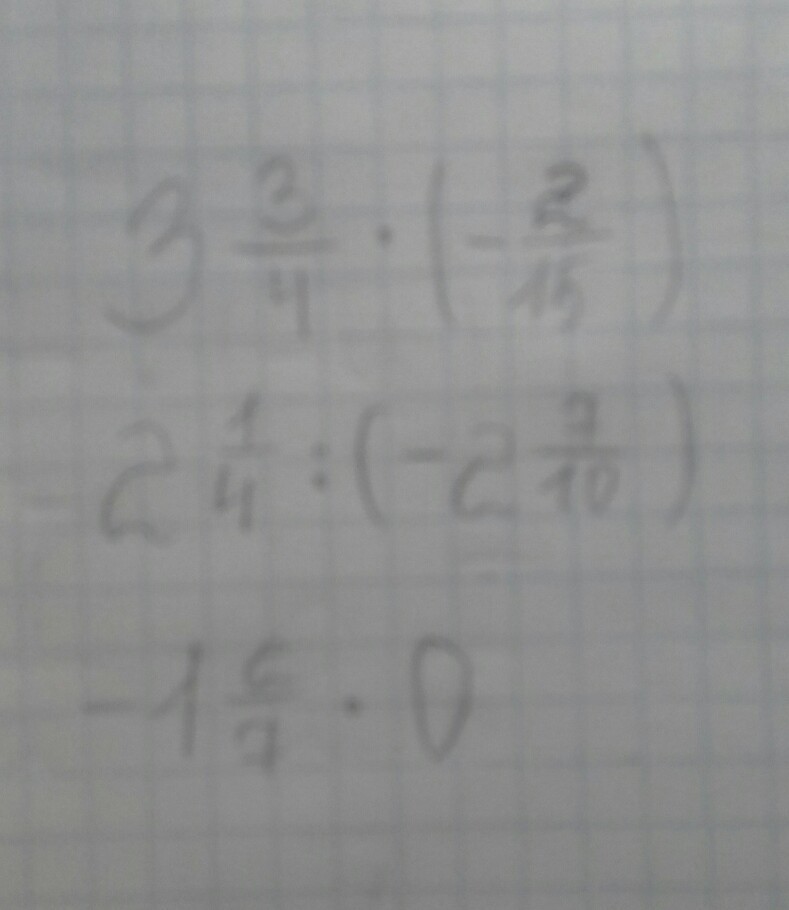 3 3/4 · (- 2/15)
2 1/4 : (- 2 7/10)
-1 6/7 · 0